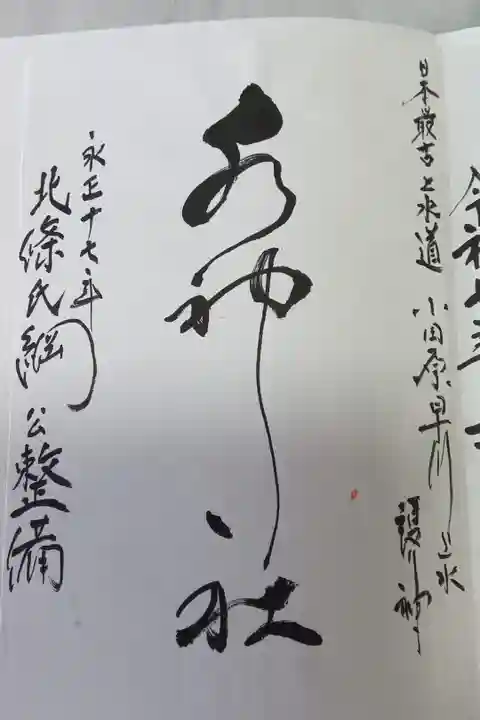 令和七年
日本最古上水道 小田原早川上水
護り神
水神社
永正十七年
北條氏綱公整備